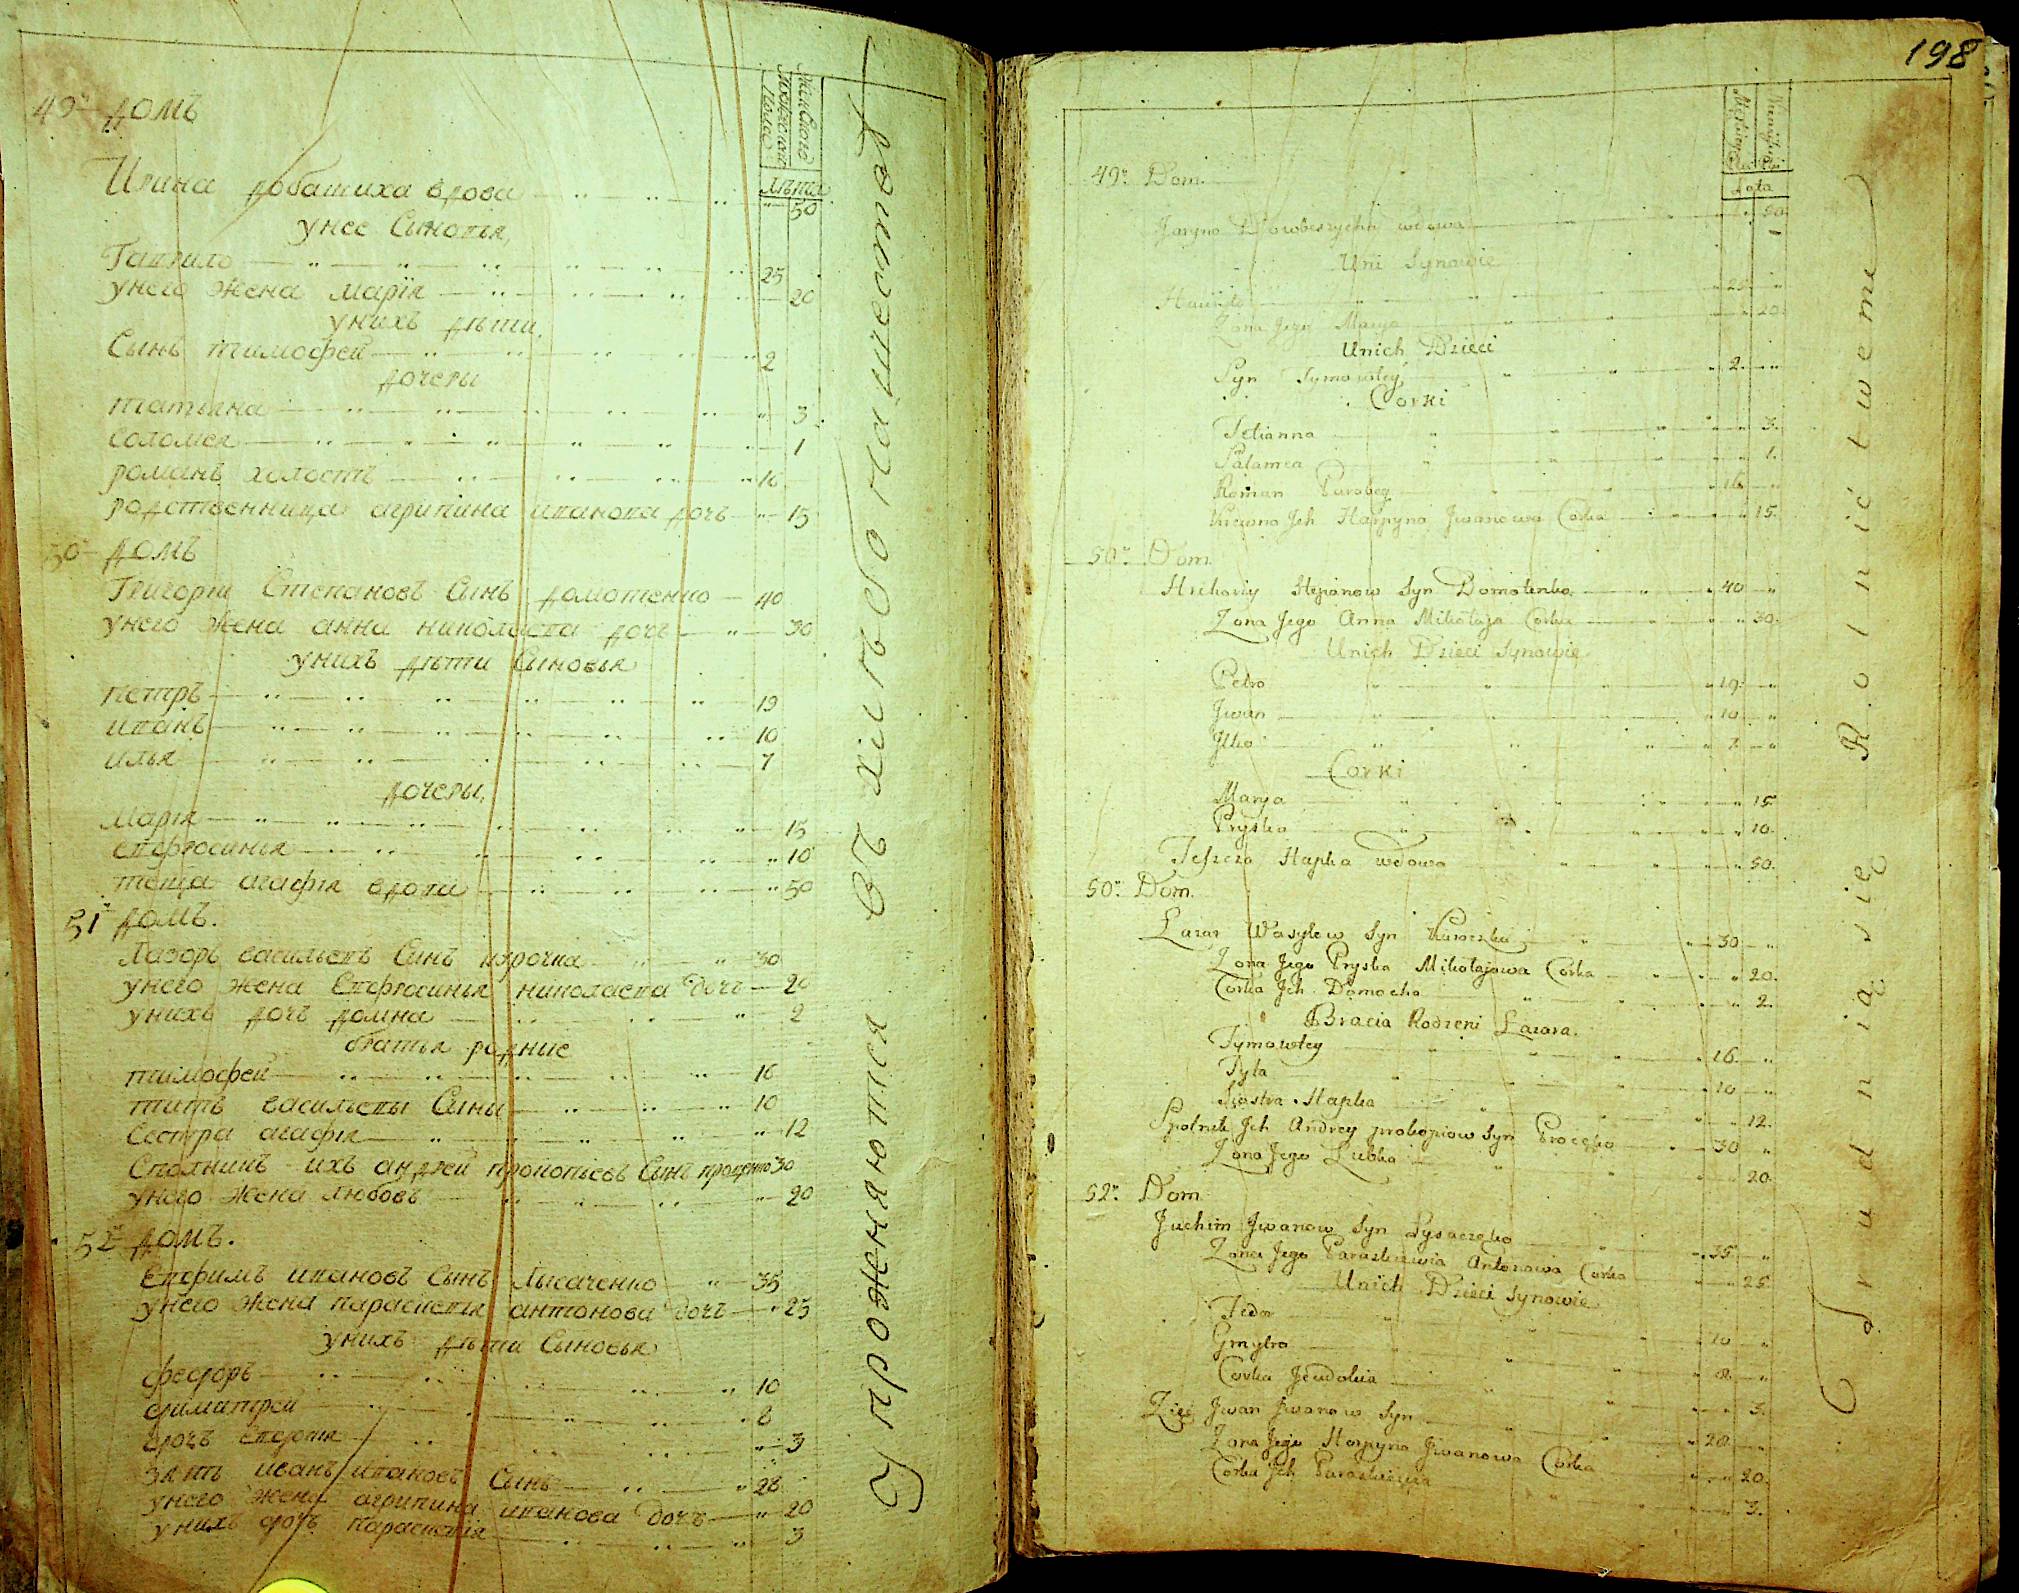 49 домъ
Мужескаго
Женскаго
Пола
лѣта
Ирина вдова 50
унее Сыновья
Гаврило 25
унего жена марія 20
унихъ дѣти
Сынъ тимофей 2
дочеры
татьяна 3
соломея 1
романъ холостъ 16
родственница агрипина иванова дочь 15
50 домъ
Григори Степановъ Сынъ домотенко 40
унего жена анна николаева дочь 30
унихъ дѣти Сыновья
петръ 19
иванъ 10
илья 7
дочеры
марія 15
евфросинья 10
теща агафія вдова 50
51 домъ.
Лазоръ васильевъ Сынъ 30
унего жена Евфросинья николаева дочь 20
унихъ дочь домна 2
братья родние
тимофей 16
титъ васильевы Сыны 10
Сестра агафія 12
Сполникъ ихъ андрей прокопіевъ Сынъ проценко 30
унего жена любовъ 20
52 домъ.
Евфимъ ивановъ Сынъ Лысаченко 35
унего жена параскевія антонова дочь 25
унихъ дѣти Сыновья
феодоръ 10
димитрей 8
дочь Евдокія 3
зять иванъ ивановъ Сынъ 28
унего жена агрипина иванова дочь 20
унихъ дочь параскевія 3
Упроженяются въ хлѣбопашествѣ
198
Lata
49. Dom.
Jaryna wdowa 50
Uni Synowie
Hawryło 25
Zona Jego Marya 20.
Unich Dzieci
Syn Tymowtey 2
Corki
Tetianna 3.
Sałamea 1.
Roman Parobeg 16
Jch Harpyna Jwanowa Corka 15.
50. Dom.
Hrehoriy Stepanow Syn Domotenko 40
Zona Jego Anna Mikołaja Corka 30.
Unich Dzieci Synowie
Petro 19.
Jwan 10
Jlko 7
Corki
Marya 15
Pryska 10.
Teszcza Hapka wdowa 50.
50. Dom.
Lazar Wasylew Syn 30
Zona Jego Pryska Mikołajowa Corka 20.
Corka Jch Domocha 2.
Bracia Rodzeni Lazara.
Tymowtey 16
Tyta 10
Siostra Hapka 12.
Spolnik Jch Andrey prokopiow Syn Procęko 30
Zona Jego Lubka 20.
52. Dom.
Juchim Jwanow Syn Łysaczęko 35
Zona Jego Paraskiewia Antonowa Corka 25.
Unich Dzieci Synowie
Fedor 10
Gmytro 8
Corka Jewdokia 3.
Zięć Jwan Jwanow Syn 28
Zona Jego Harpyna Jwanowa Corka 20.
Corka Jch Paraskiewia 3.
Trudniąsię Rolnictwem